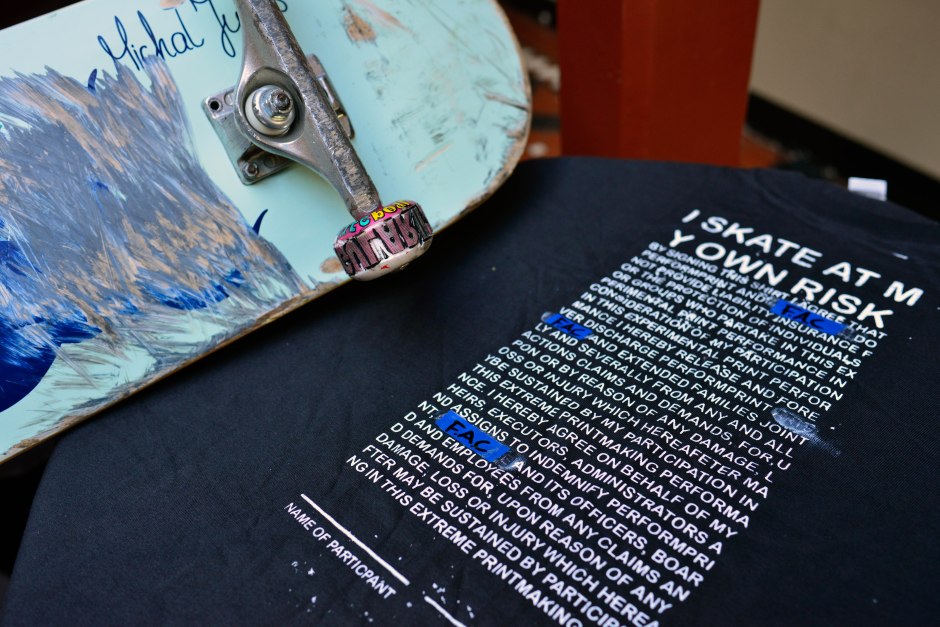 Michal
I SKATE AT M
Y OWN RISK
BY SIGNING THIS SHIRT I AGREE THAT
PERFORMPRINT AND FAC DO
NOT PROVIDE LIABILITY INSURANCE F
OR THE PROTECTION OF INDIVIDUALS
OR GROUPS WHO PARTAKE IN THIS EX
PERIMENTAL PRINT PERFORMANCE IN
CONSIDERATION OF MY PARTICIPATION
IN THIS EXPERIMENTAL PRINT PERFOR
MANCE I HEREBY RELEASE AND FORE
VER DISCHARGE PERFORMPRINT AND
FAC AND EXTENDED FAMILIES, JOINT
LY AND SEVERALLY FROM ANY AND ALL
ACTIONS CLAIMS AND DEMANDS, FOR, U
PON OR BY REASON OF ANY DAMAGE, L
OSS OR INJURY WHICH HEREAFETER MA
YBE SUSTAINED BY MY PARTICIPATION IN
THIS EXTREME PRINTMAKING PERFORMA
NCE. I HEREBY AGREE ON BEHALF OF MY
HEIRS, EXECUTORS, ADMINISTRATORS A
ND ASSIGNS TO INDEMNIFY PERFORMPRI
NT. FAC AND ITS OFFICERS, BOAR
D AND EMPLOYEES FROM ANY CLAIMS AN
D DEMANDS FOR, UPON REASON OF ANY
DAMAGE, LOSS OR INJURY WHICH HEREA
FTER MAY BE SUSTAINED BY PARTICIP
NG IN THIS EXTREME PRINTMAKING
NAME OF PARTICPANT